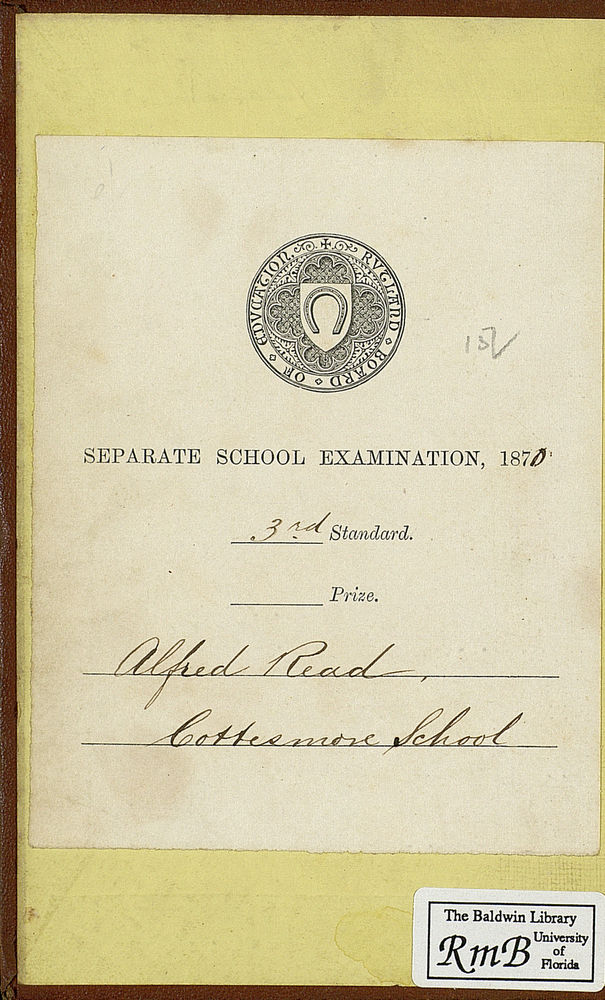 RVTLAND · BOARD · OF · EDVCATION
15/
SEPARATE SCHOOL EXAMINATION, 1870
3rd Standard.
Prize.
Alfred Read,
Cottesmore School
The Baldwin Library
RmB University
of
Florida